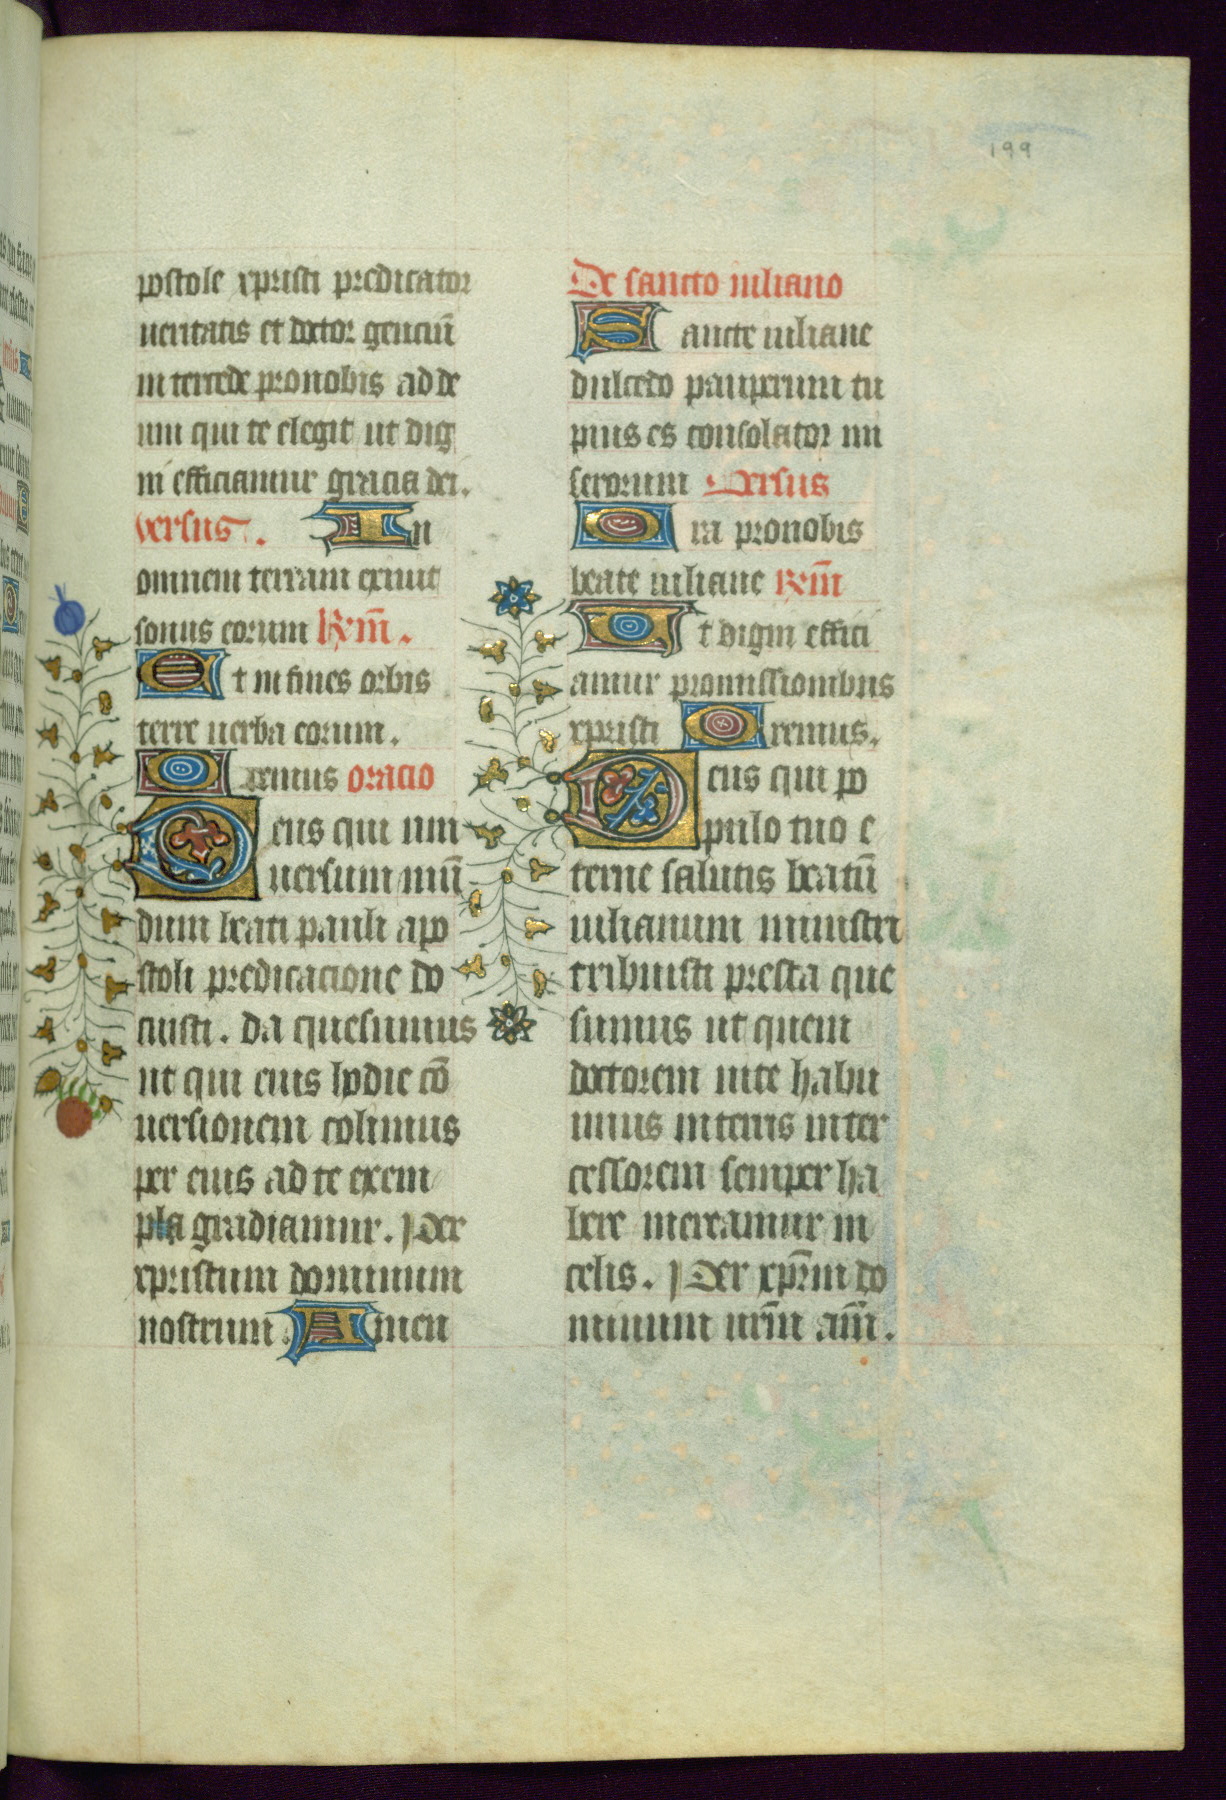 199
postole xpristi predicator
ueritatis et doctor genciū
intercede pronobis ad de
um qui te elegit ut dig
ni efficiamur gracia dei.
versus. In
omnem terram exiuit
sonus eorum Rem̄.
Et in fines orbis
terre uerba eorum.
Oremus oracio
Deus qui uni
uersum mū
dum beati pauli apo
stoli predicacione do
cuisti. da quesumus
ut qui eius hodie cō
uersionem colimus
per eius ad te exem
pla gradiamur. Per
xpristum dominum
nostrum. Amen
De sancto iuliano
Sancte iuliane
dulcedo pauperum tu
pius es consolator mi
serorum Versus
Ora pronobis
beate iuliane Rem̄
Ut digni effici
amur promissionibus
xpristi Oremus.
Deus qui po
pulo tuo e
terne salutis beatū
iulianum ministri
tribuisti presta que
sumus ut quem
doctorem uite habu
imus in terris inter
cessorem semper ha
bere mereamur in
celis. Per xpr̄m do
minum nr̄m am̄.